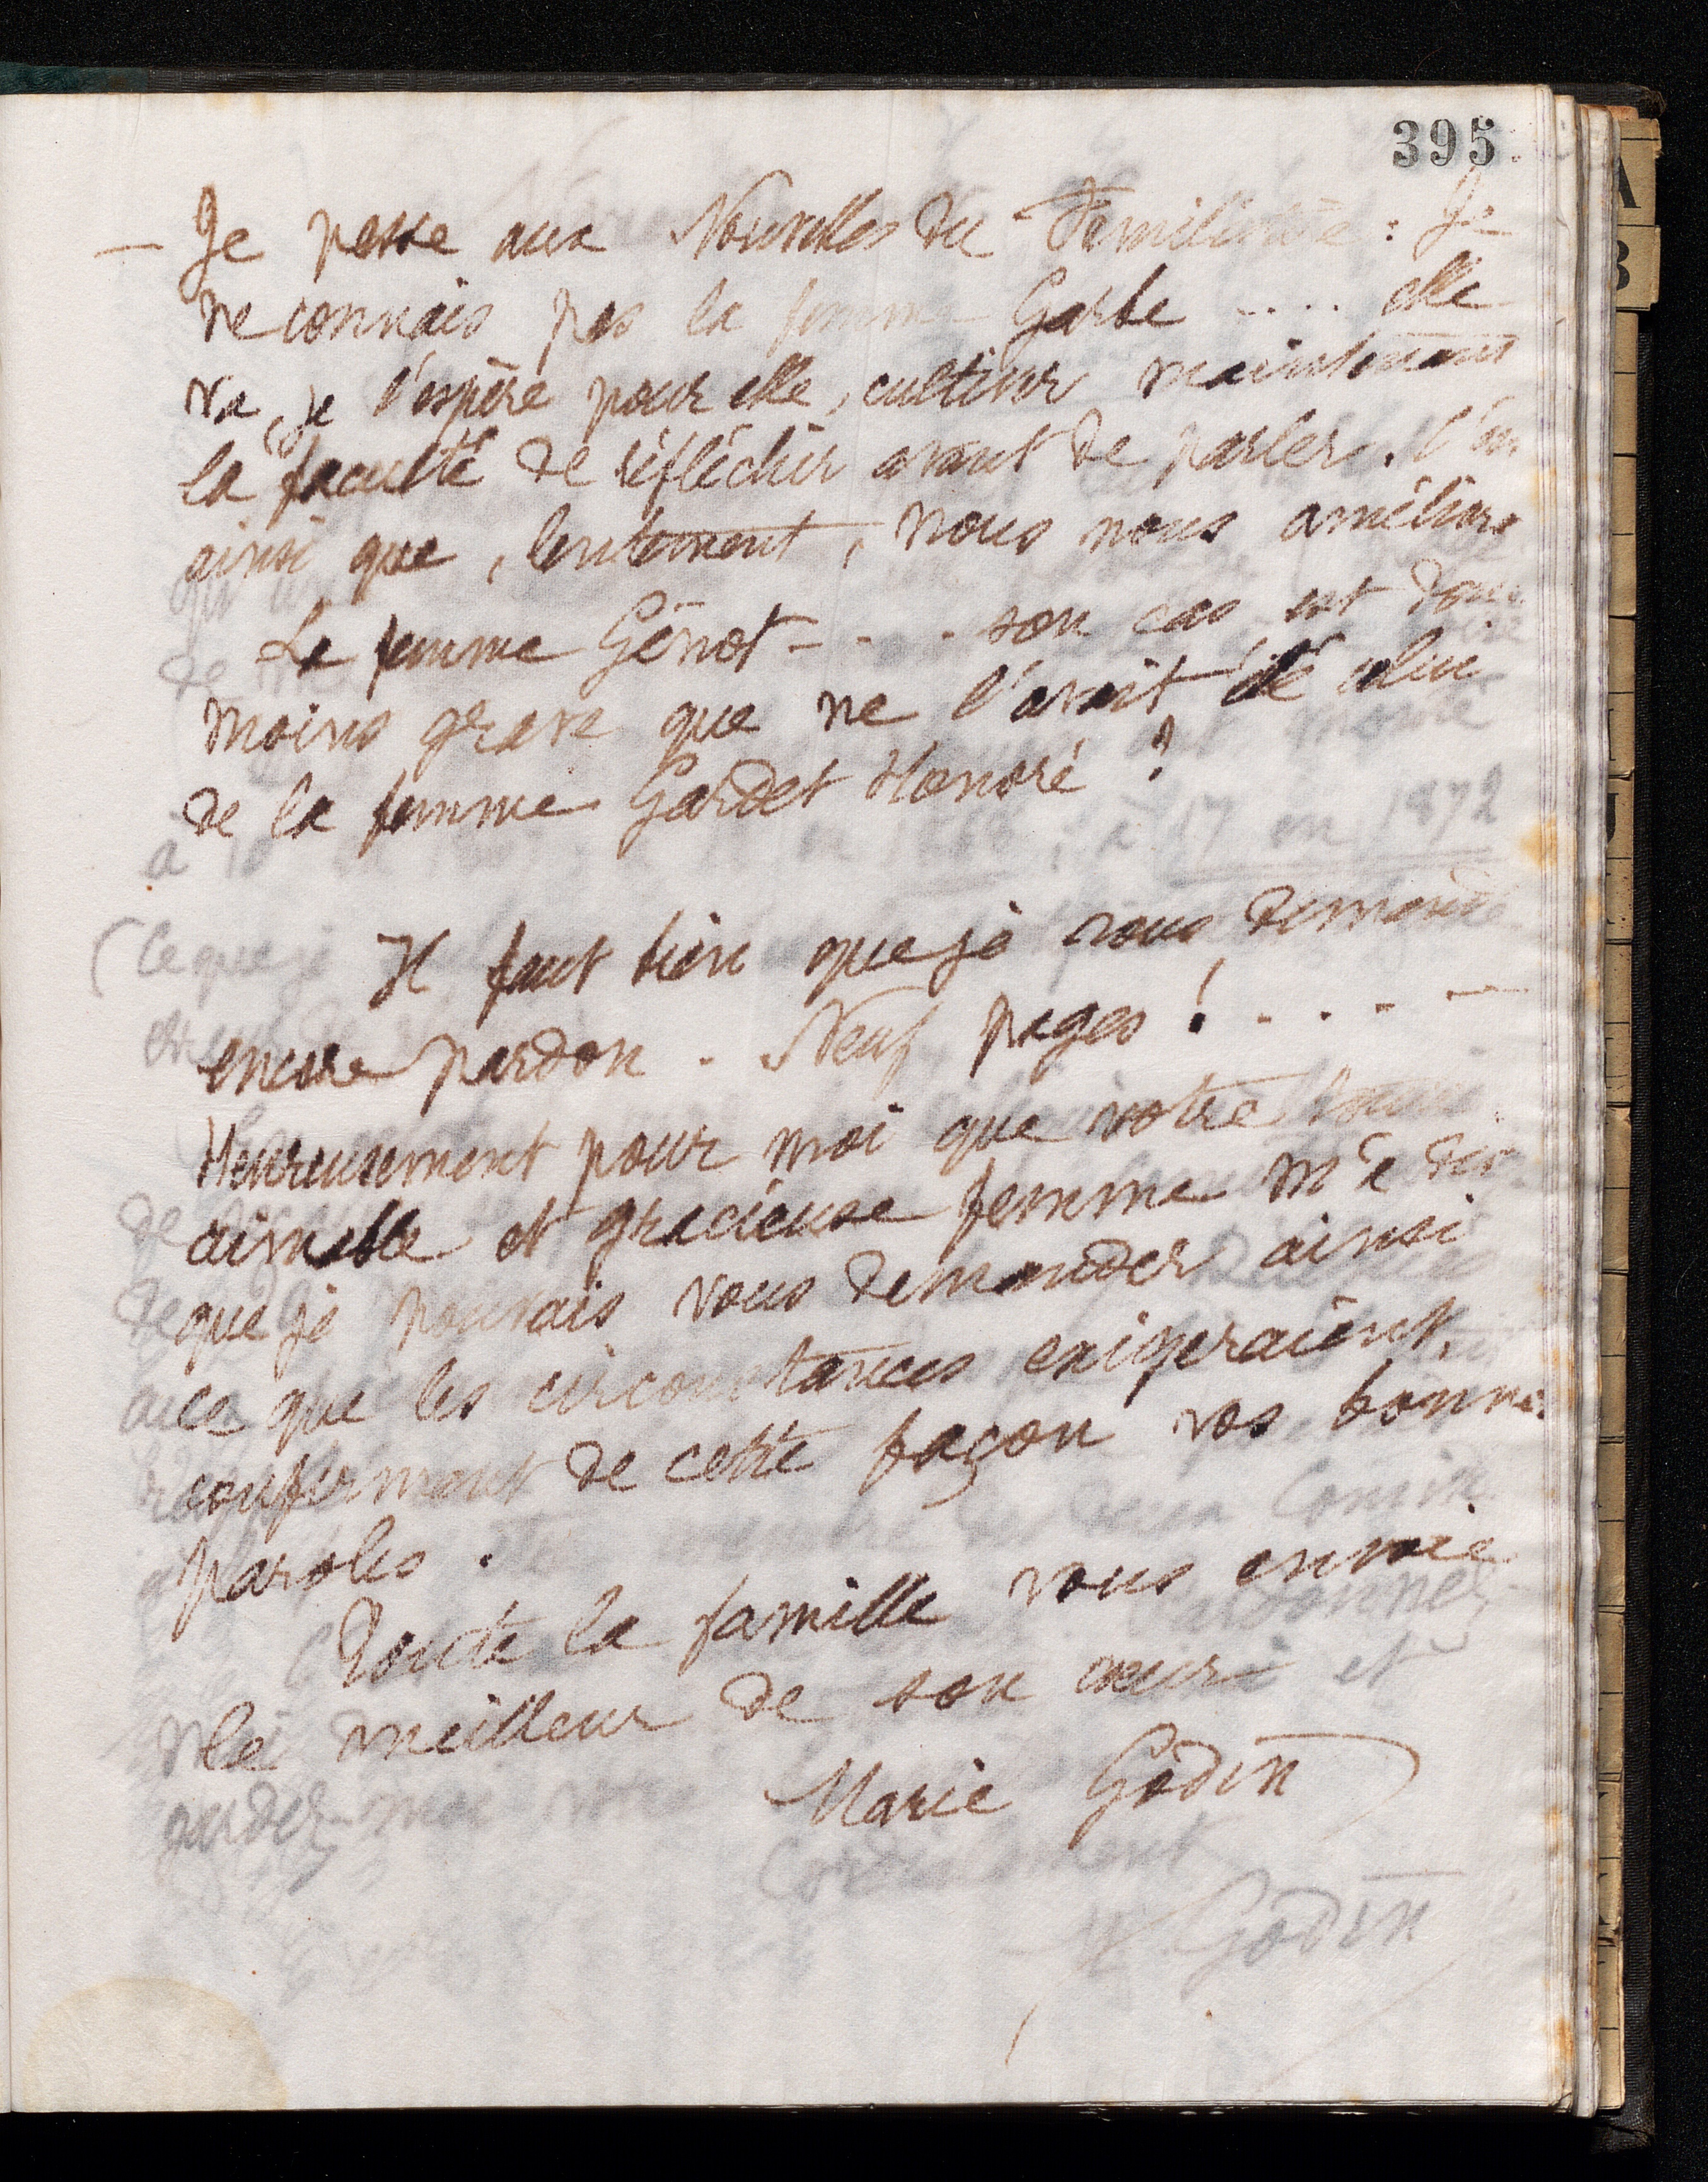 395
— Je passe aux Nouvelles du Familistère : Je
ne connais pas la femme Garbe .... elle
va, je l'espère pour elle, cultiver maintenant
la faculté de réfléchir avant de parler. C'est
ainsi que, lentement, nous nous améliorons
La femme Génot - . . . son cas est donc
moins grave que ne l'avait été celui
de la femme Gardet Honoré ?
Il faut bien que je vous demande
encore pardon. Neuf pages ! . . . .
Heureusement pour moi que votre
aimable et gracieuse femme m'a dit
que je pouvais vous demander ainsi
ce que les circonstances exigeraient,
confirmant de cette façon vos bonnes
paroles.
Toute la famille vous envoie
le meilleur de son cœur
Marie Godin